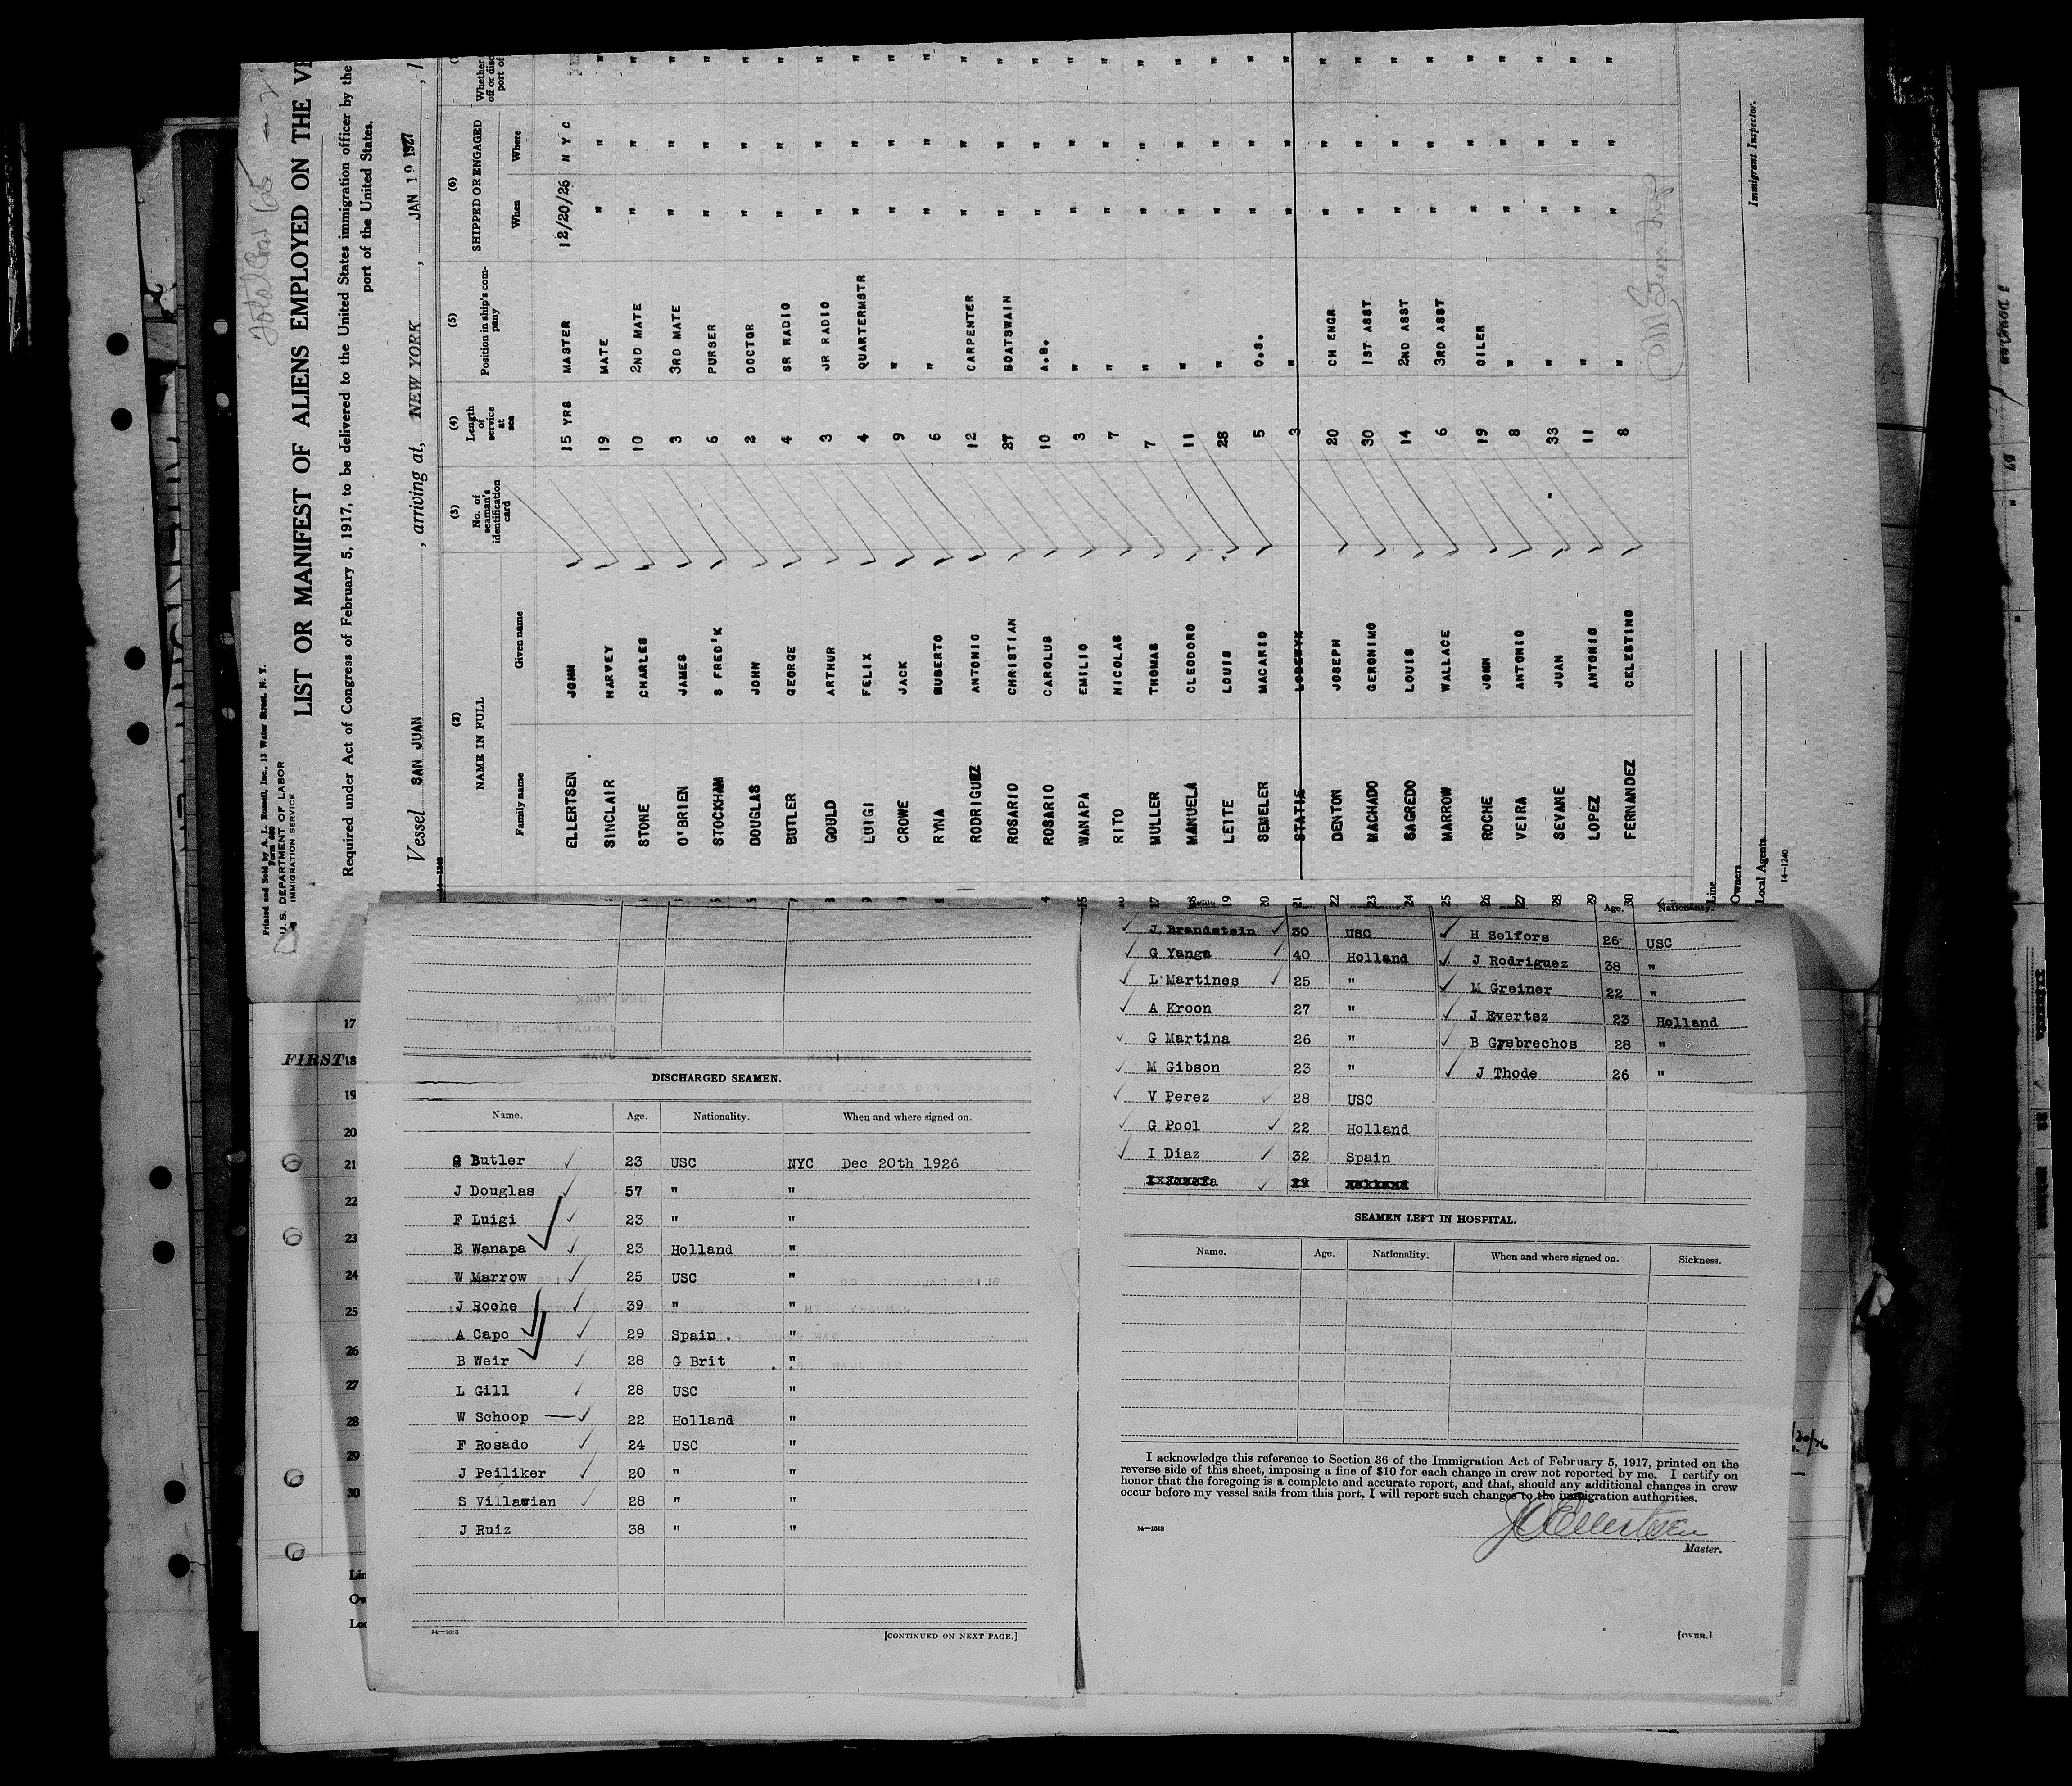 Total Crew 65
Printed and Sold by A. L. Russell, Inc., 13 Water Street, N. Y.
Form 680
U. S. DEPARTMENT OF LABOR
IMMIGRATION SERVICE
LIST OR MANIFEST OF ALIENS EMPLOYED ON THE
Required under Act of Congress of February 5, 1917, to be delivered to the United States immigration officer by the
port of the United States.
Vessel SAN JUAN , arriving at, NEW YORK , JAN 19 1927 , 1
(2) (3) (4) (5) (6)
NAME IN FULL No. of seaman's identification card Length of service at sea Position in ship's company SHIPPED OR ENGAGED Whether
Family name Given name When Where
ELLERTSEN JOHN 15 YRS MASTER 12/20/26 N Y C YES
SINCLAIR HARVEY 19 MATE " " "
STONE CHARLES 10 2ND MATE " " "
O'BRIEN JAMES 3 3RD MATE " " "
STOCKHAM S FRED'K 6 PURSER " " "
DOUGLAS JOHN 2 DOCTOR " " "
BUTLER GEORGE 4 SR RADIO " " "
GOULD ARTHUR 3 JR RADIO " " "
LUIGI FELIX 4 QUARTERMSTR " " "
CROWE JACK 9 " " " "
RYNA RUBERTO 6 " " " "
RODRIGUEZ ANTONIO 12 CARPENTER " " "
ROSARIO CHRISTIAN 27 BOATSWAIN " " "
ROSARIO CAROLUS 10 A.B. " " "
WANAPA EMILIO 3 " " " "
RITO NICOLAS 7 " " " "
17 MULLER THOMAS 7 " " " "
18 MANUELA CLEODORO 11 " " " "
19 LEITE LOUIS 28 " " " "
20 SEMELER MACARIO 5 O.S. " " "
21 STATIE LODEWYK 3 " " " "
22 DENTON JOSEPH 20 CH ENGR " " "
23 MACHADO GERONIMO 30 1ST ASST " " "
24 SAGREDO LOUIS 14 2ND ASST " " "
25 MARROW WALLACE 6 3RD ASST " " "
26 ROCHE JOHN 19 OILER " " "
27 VEIRA ANTONIO 8 " " " "
28 SEVANE JUAN 33 " " " "
29 LOPEZ ANTONIO 11 " " " "
30 FERNANDEZ CELESTINO 8 " " " "
Line
Owners
Local Agents
Immigrant Inspector.
14—1240
17
FIRST 18
19
20
21
22
23
24
25
26
27
28
29
30
DISCHARGED SEAMEN.
Name. Age. Nationality. When and where signed on.
G Butler 23 USC NYC Dec 20th 1926
J Douglas 57 " "
F Luigi 23 " "
E Wanapa 23 Holland "
W Marrow 25 USC "
J Roche 39 " "
A Capo 29 Spain . "
B Weir 28 G Brit "
L Gill 28 USC "
W Schoop 22 Holland "
F Rosado 24 USC "
J Peiliker 20 " "
S Villavian 28 " "
J Ruiz 38 " "
14—1613 [CONTINUED ON NEXT PAGE.]
Age. Nationality.
J. Brandstein 30 USC H Selfors 26 USC
G Yanga 40 Holland J Rodriguez 38 "
L Martines 25 " M Greiner 22 "
A Kroon 27 " J Evertsz 23 Holland
G Martina 26 " B Gysbrechos 28 "
M Gibson 23 " J Thode 26 "
V Perez 28 USC
G Pool 22 Holland
I Diaz 32 Spain
SEAMEN LEFT IN HOSPITAL.
Name. Age. Nationality. When and where signed on. Sickness.
I acknowledge this reference to Section 36 of the Immigration Act of February 5, 1917, printed on the
reverse side of this sheet, imposing a fine of $10 for each change in crew not reported by me. I certify on
honor that the foregoing is a complete and accurate report, and that, should any additional changes in crew
occur before my vessel sails from this port, I will report such changes to the immigration authorities.
14—1613
J Ellertsen
Master.
[OVER.]